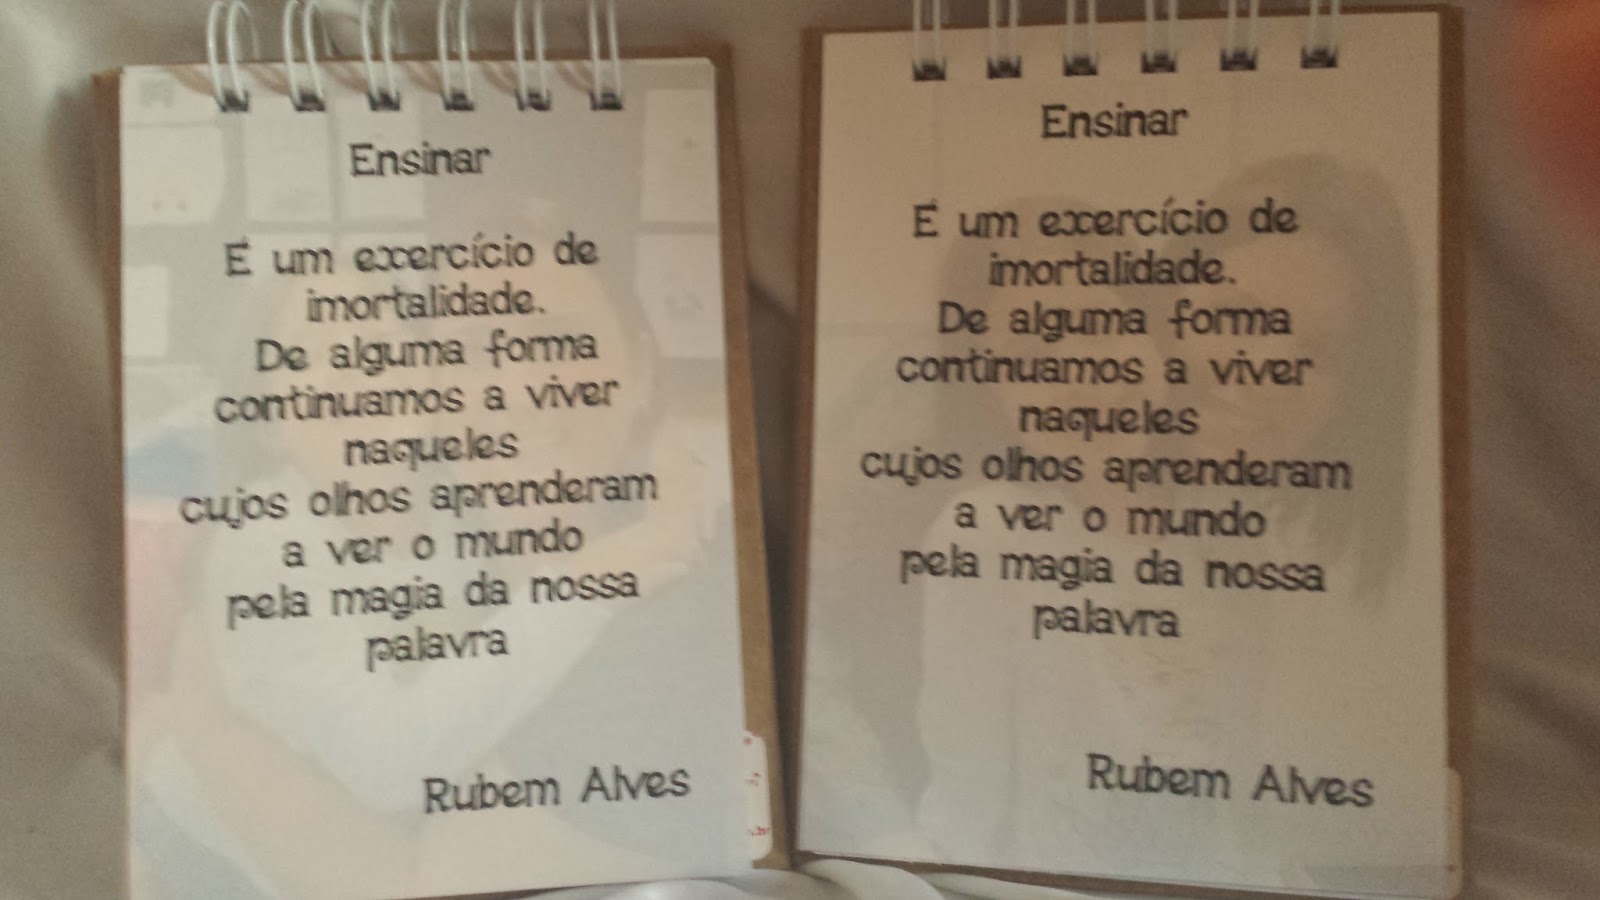 Ensinar
É um exercício de
imortalidade.
De alguma forma
continuamos a viver
naqueles
cujos olhos aprenderam
a ver o mundo
pela magia da nossa
palavra
Rubem Alves
Ensinar
É um exercício de
imortalidade.
De alguma forma
continuamos a viver
naqueles
cujos olhos aprenderam
a ver o mundo
pela magia da nossa
palavra
Rubem Alves